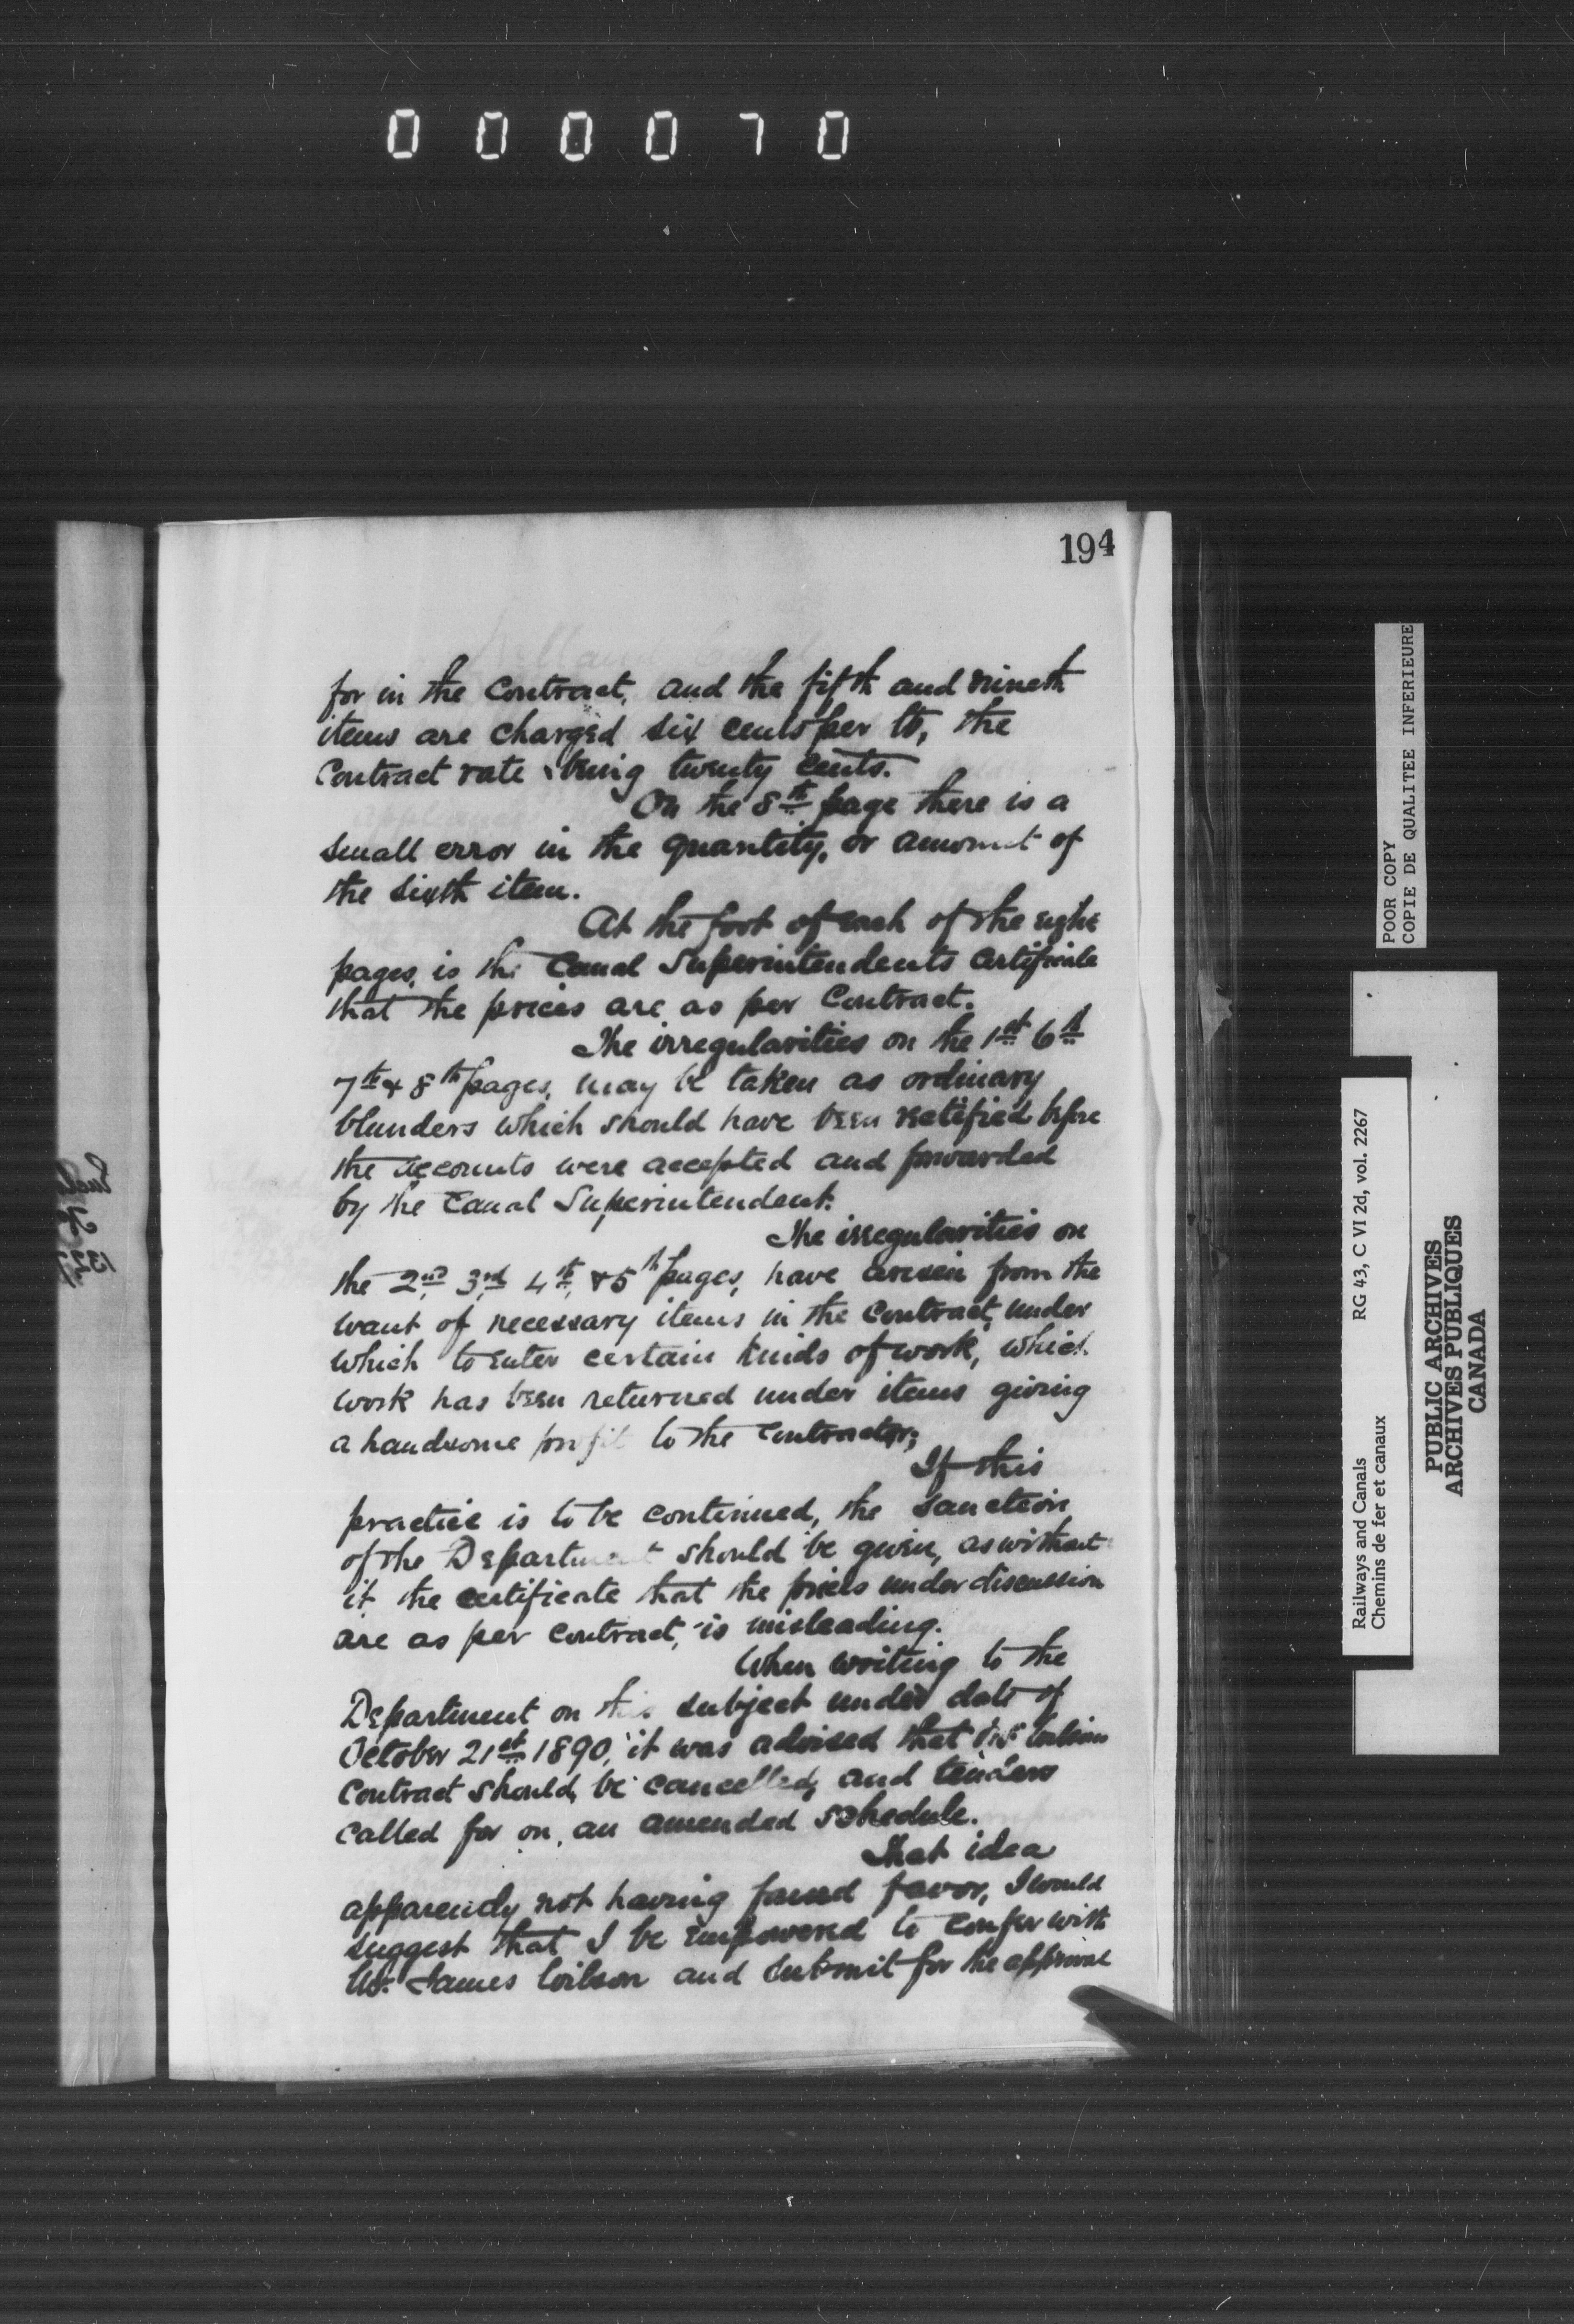 0 0 0 0 7 0
194
for in the Contract, and the fifth and nineth
items are charged six cents per lb, the
Contract rate being twenty cents.
On the 8th page there is a
small error in the quantity, or amount of
the sixth item.
At the foot of each of the eight
pages, is the Canal Superintendents Certificate
that the prices are as per Contract.
The irregularities on the 1st 6th
7th & 8th pages, may be taken as ordinary
blunders which should have been rectified before
the accounts were accepted and forwarded
by the Canal Superintendent.
The irregularities on
the 2nd 3rd 4th & 5th pages, have arisen from the
want of necessary items in the Contract, under
which to enter certain kinds of work, which
work has been returned under items giving
a handsome profit to the Contractor;
If this
practice is to be continued, the sanction
of the Department should be given, as without
it the certificate that the prices under discussion
are as per contract, is misleading.
When writing to the
Department on this subject under date of
October 21st 1890, it was advised that Wilson
Contract should, be cancelled, and tenders
called for on, an amended schedule.
That idea
apparently not having found favor, I would
suggest that I be empowered to confer with
Mr. James Wilson and submit for the approval
POOR COPY
COPIE DE QUALITEE INFERIEURE
Railways and Canals RG 43, C VI 2d, vol. 2267
Chemins de fer et canaux
PUBLIC ARCHIVES
ARCHIVES PUBLIQUES
CANADA